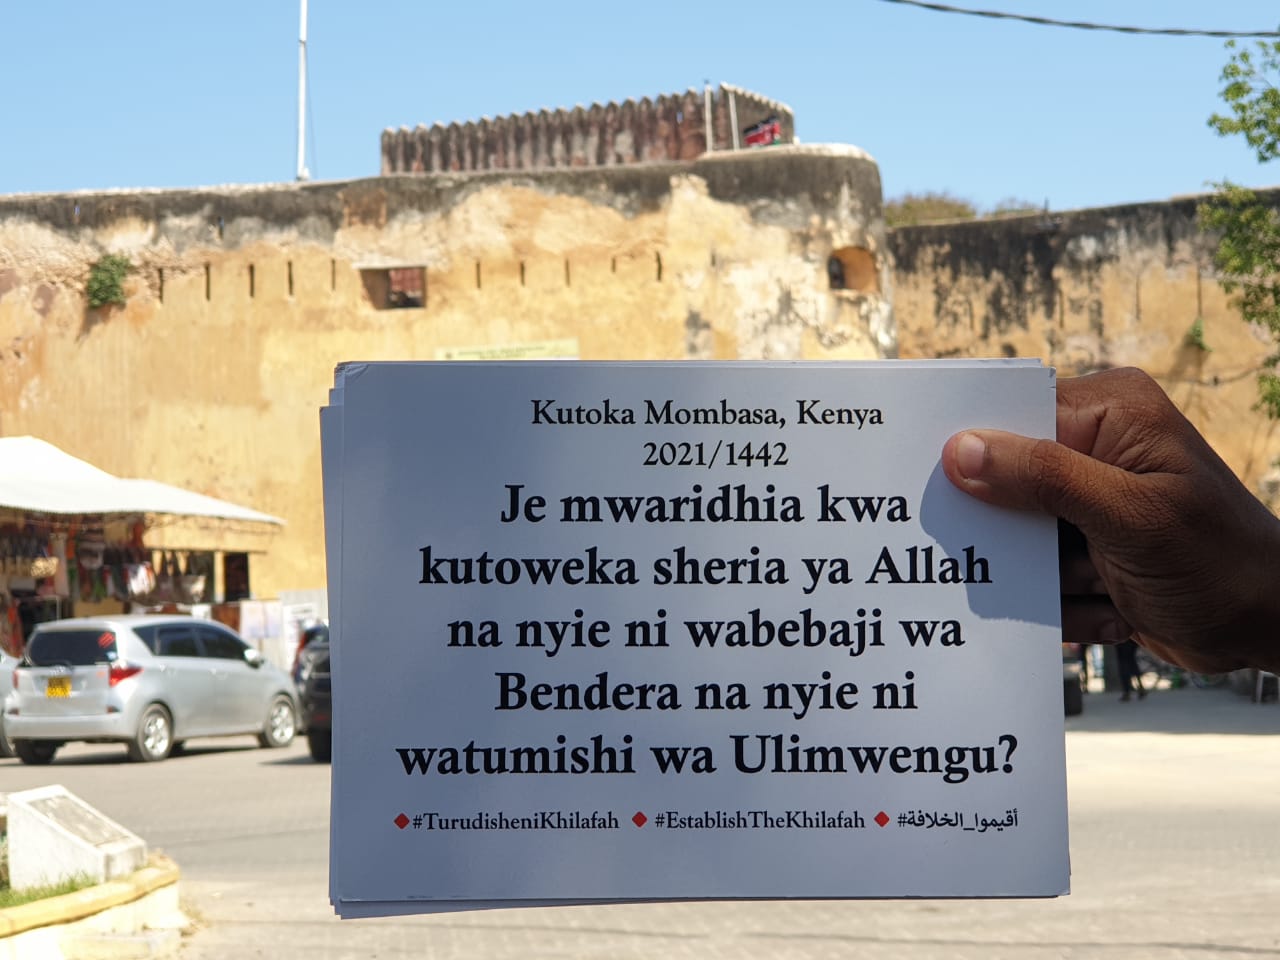 Kutoka Mombasa, Kenya
2021/1442
Je mwaridhia kwa
kutoweka sheria ya Allah
na nyie ni wabebaji wa
Bendera na nyie ni
watumishi wa Ulimwengu?
#TurudisheniKhilafah #EstablishTheKhilafah #أقيموا_الخلافة